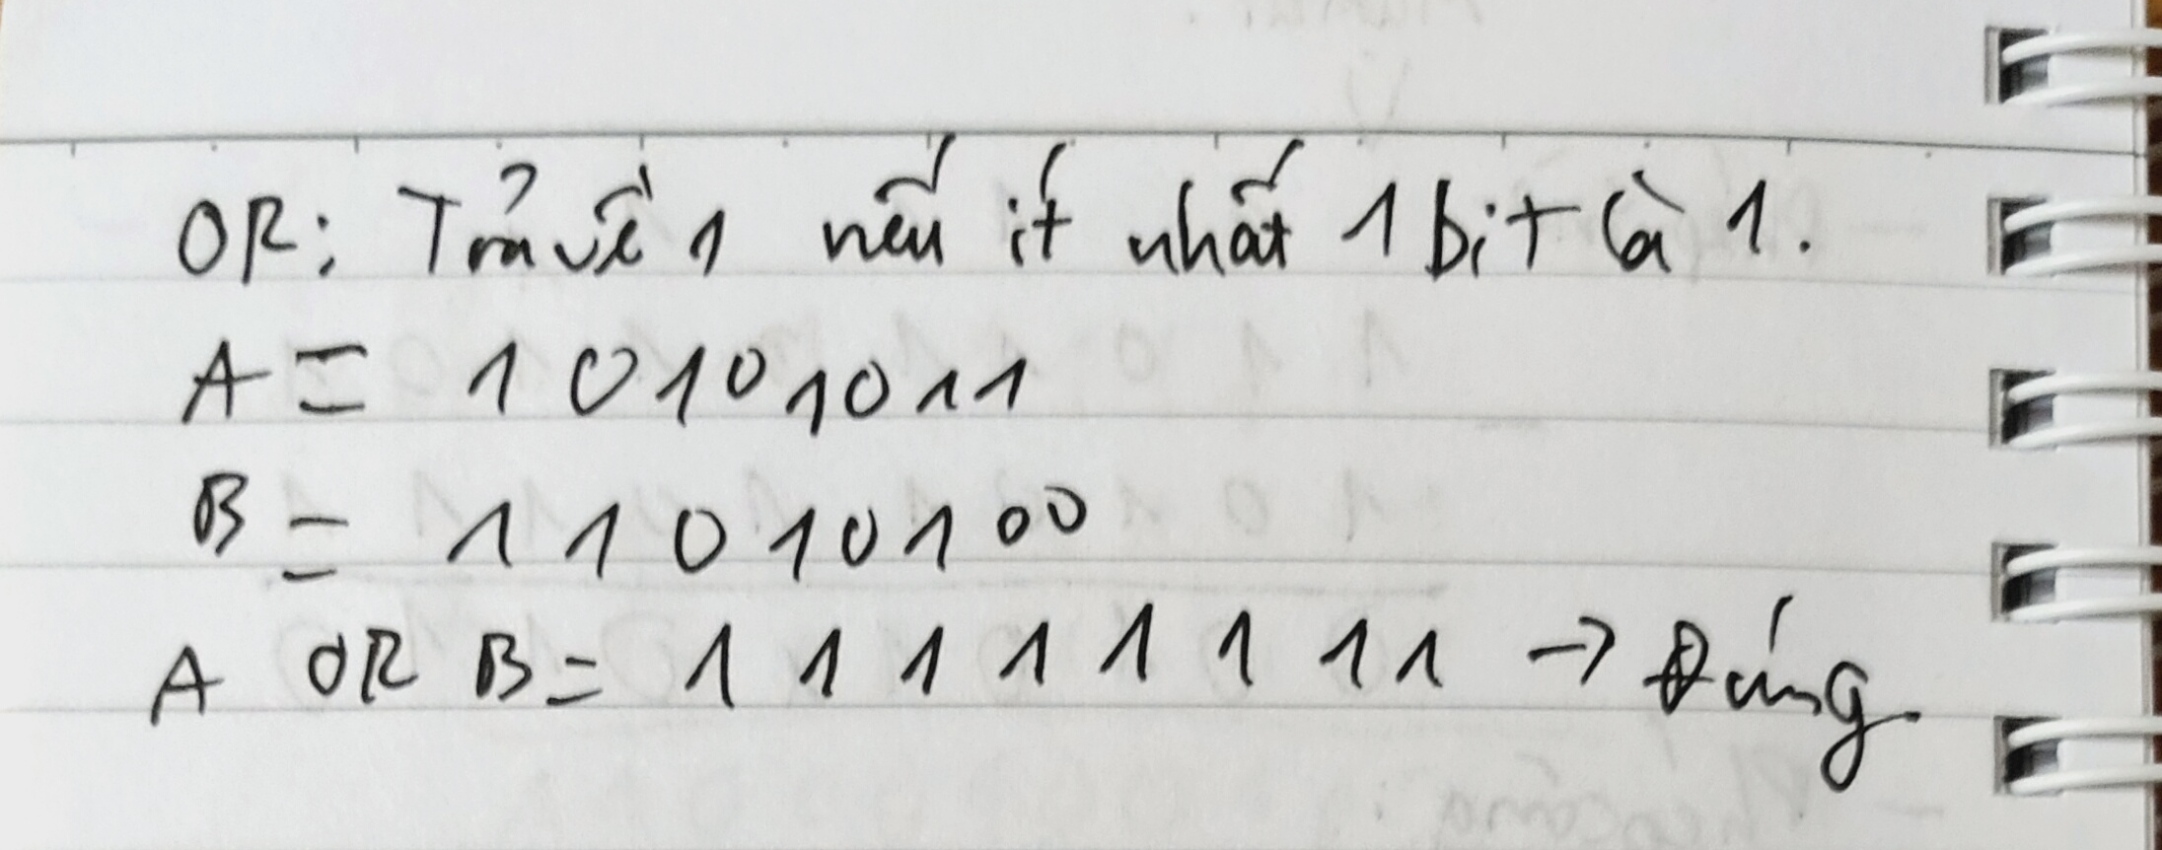 OR: Trả về 1 nếu ít nhất 1 bit là 1.
A = 10101011
B = 11010100
A OR B = 11111111 → Đúng